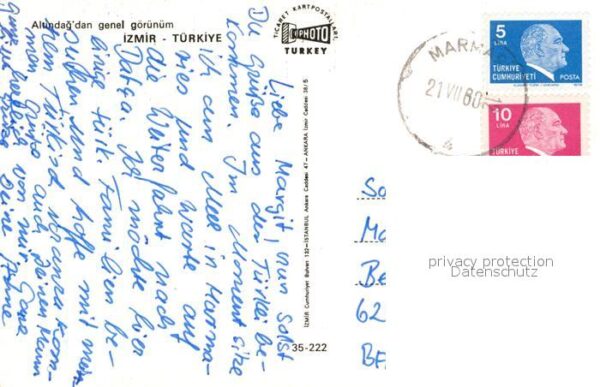 Altındağ'dan genel görünüm
İZMİR - TÜRKİYE
TİCARET KARTPOSTALLARI
PHOTO
TURKEY
Liebe Margit, nun sollst
Du Grüße aus der Türkei be-
kommen. Im Moment sitze
ich am Meer in Marma-
ris und warte auf
die Weiterfahrt nach
Datça. Ich möchte hier
einig türk. Familien be-
suchen und hoffe mit mei-
nem Türkisch voranzukom-
men. Grüße auch Deinen Mann
von mir. Ganz
Deine
İZMİR Cumhuriyet Bulvarı 132-İSTANBUL Ankara Caddesi 47 - ANKARA İzmir Caddesi 38/5
35-222
MARMA
21 VII 80
5
LİRA
TÜRKİYE
CUMHURİYETİ
POSTA
10
LİRA
TÜRKİYE
So
Ma
Be
62
BE
privacy protection
Datenschutz